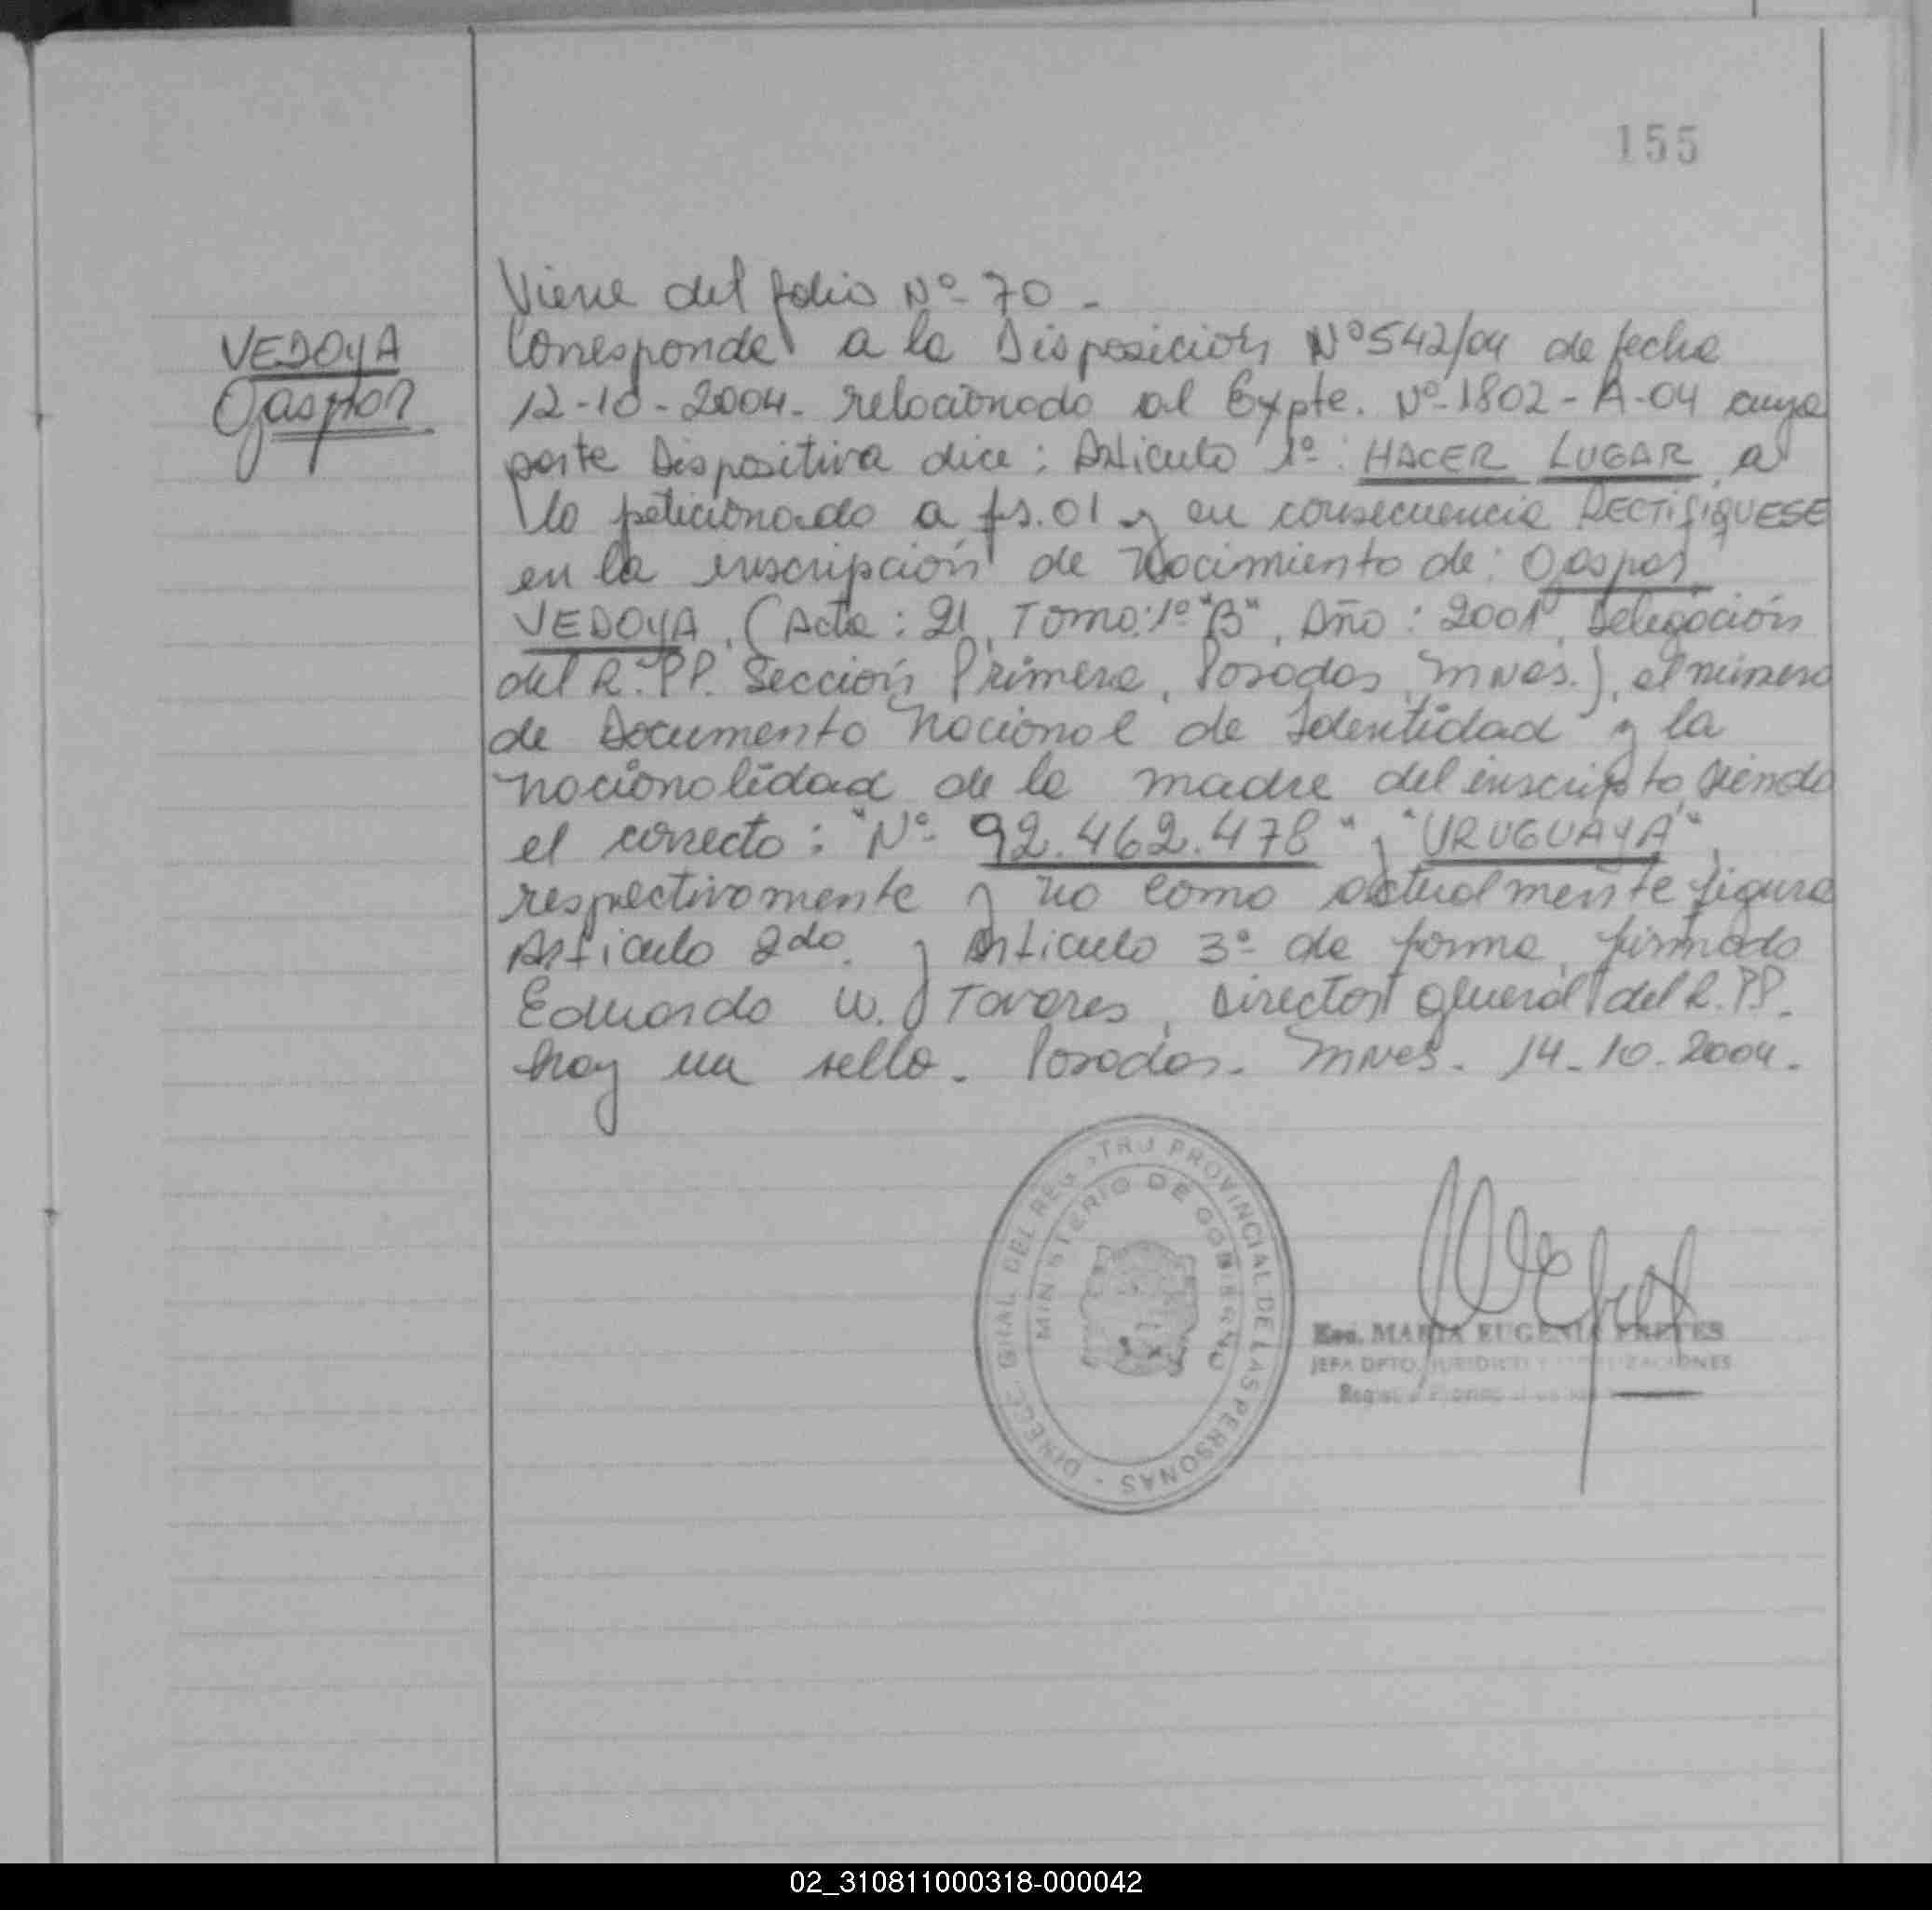 155
Viene del folio Nº 70 -
VEDOYA
Gaspar
Corresponde a la Disposición Nº 542/04 de fecha
12-10-2004. relacionado al Expte. Nº 1802-A-04 cuya
parte Dispositiva dice: Articulo 1º: HACER LUGAR a
lo peticionado a fs.01 y en consecuencia RECTIFIQUESE
en la inscripción de Nacimiento de: Gaspar
VEDOYA, (Acta: 21, Tomo: 1º "B", Año: 2001, Delegación
del R. PP. Sección Primera, Posadas, Mnes.), el número
de Documento Nacional de Identidad y la
nacionalidad de la madre del inscripto, siendo
el correcto: "Nº 92.462.478" y "URUGUAYA",
respectivamente y no como actualmente figura
Articulo 2do. y Articulo 3º de forma, firmado
Eduardo W. Tavares, Director general del R. PP.
hay un sello. Posadas. Mnes. 14-10-2004.
DIRECC. GRAL. DEL REGISTRO PROVINCIAL DE LAS PERSONAS -
MINISTERIO DE GOBIERNO
Esc. MARIA EUGENIA FRETES
JEFA DPTO. JURIDICO Y
02_310811000318-000042